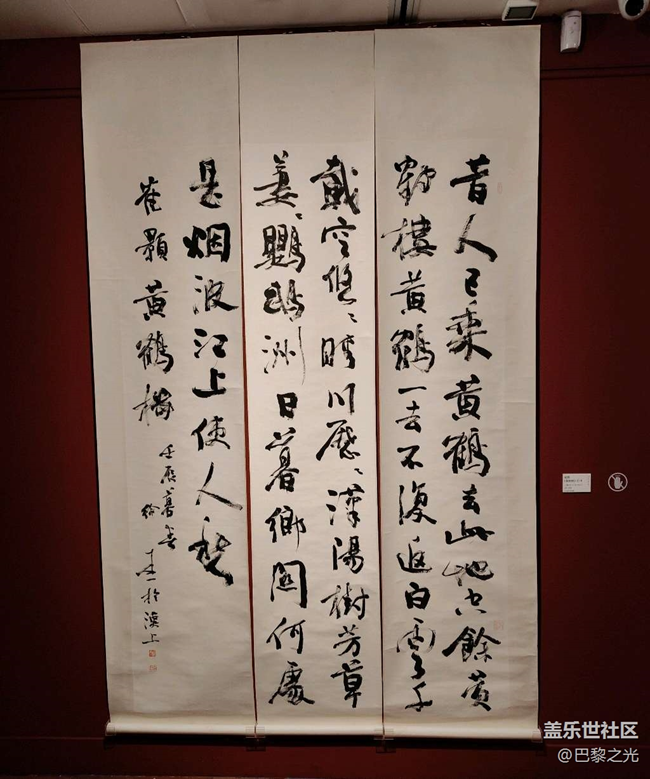 昔人已乘黄鶴去此地空餘黄
鶴樓黄鶴一去不復返白雲千
載空悠〻晴川歷〻漢陽樹芳草
萋〻鸚鵡洲日暮鄉關何處
是烟波江上使人愁
崔顥黄鶴樓
壬辰暮春
徐本一於漢上
盖乐世社区
@巴黎之光